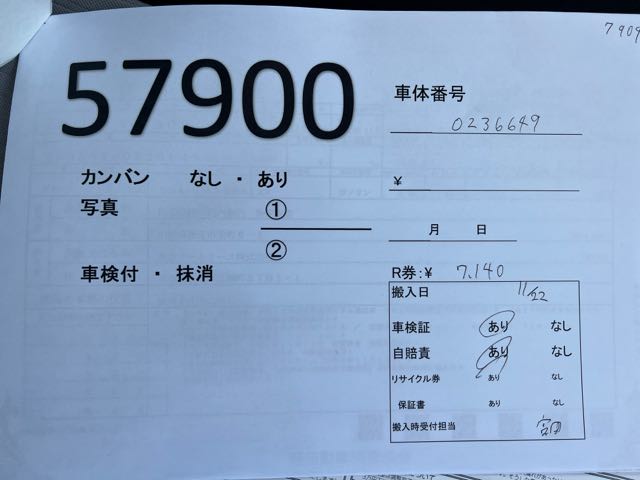 7909
57900
車体番号
0236649
カンバン なし ・ あり
¥
写真 ①
②
月 日
車検付 ・ 抹消
R券:¥ 7,140
搬入日 11/22
車検証 あり なし
自賠責 あり なし
リサイクル券 あり なし
保証書 あり なし
搬入時受付担当 宮田